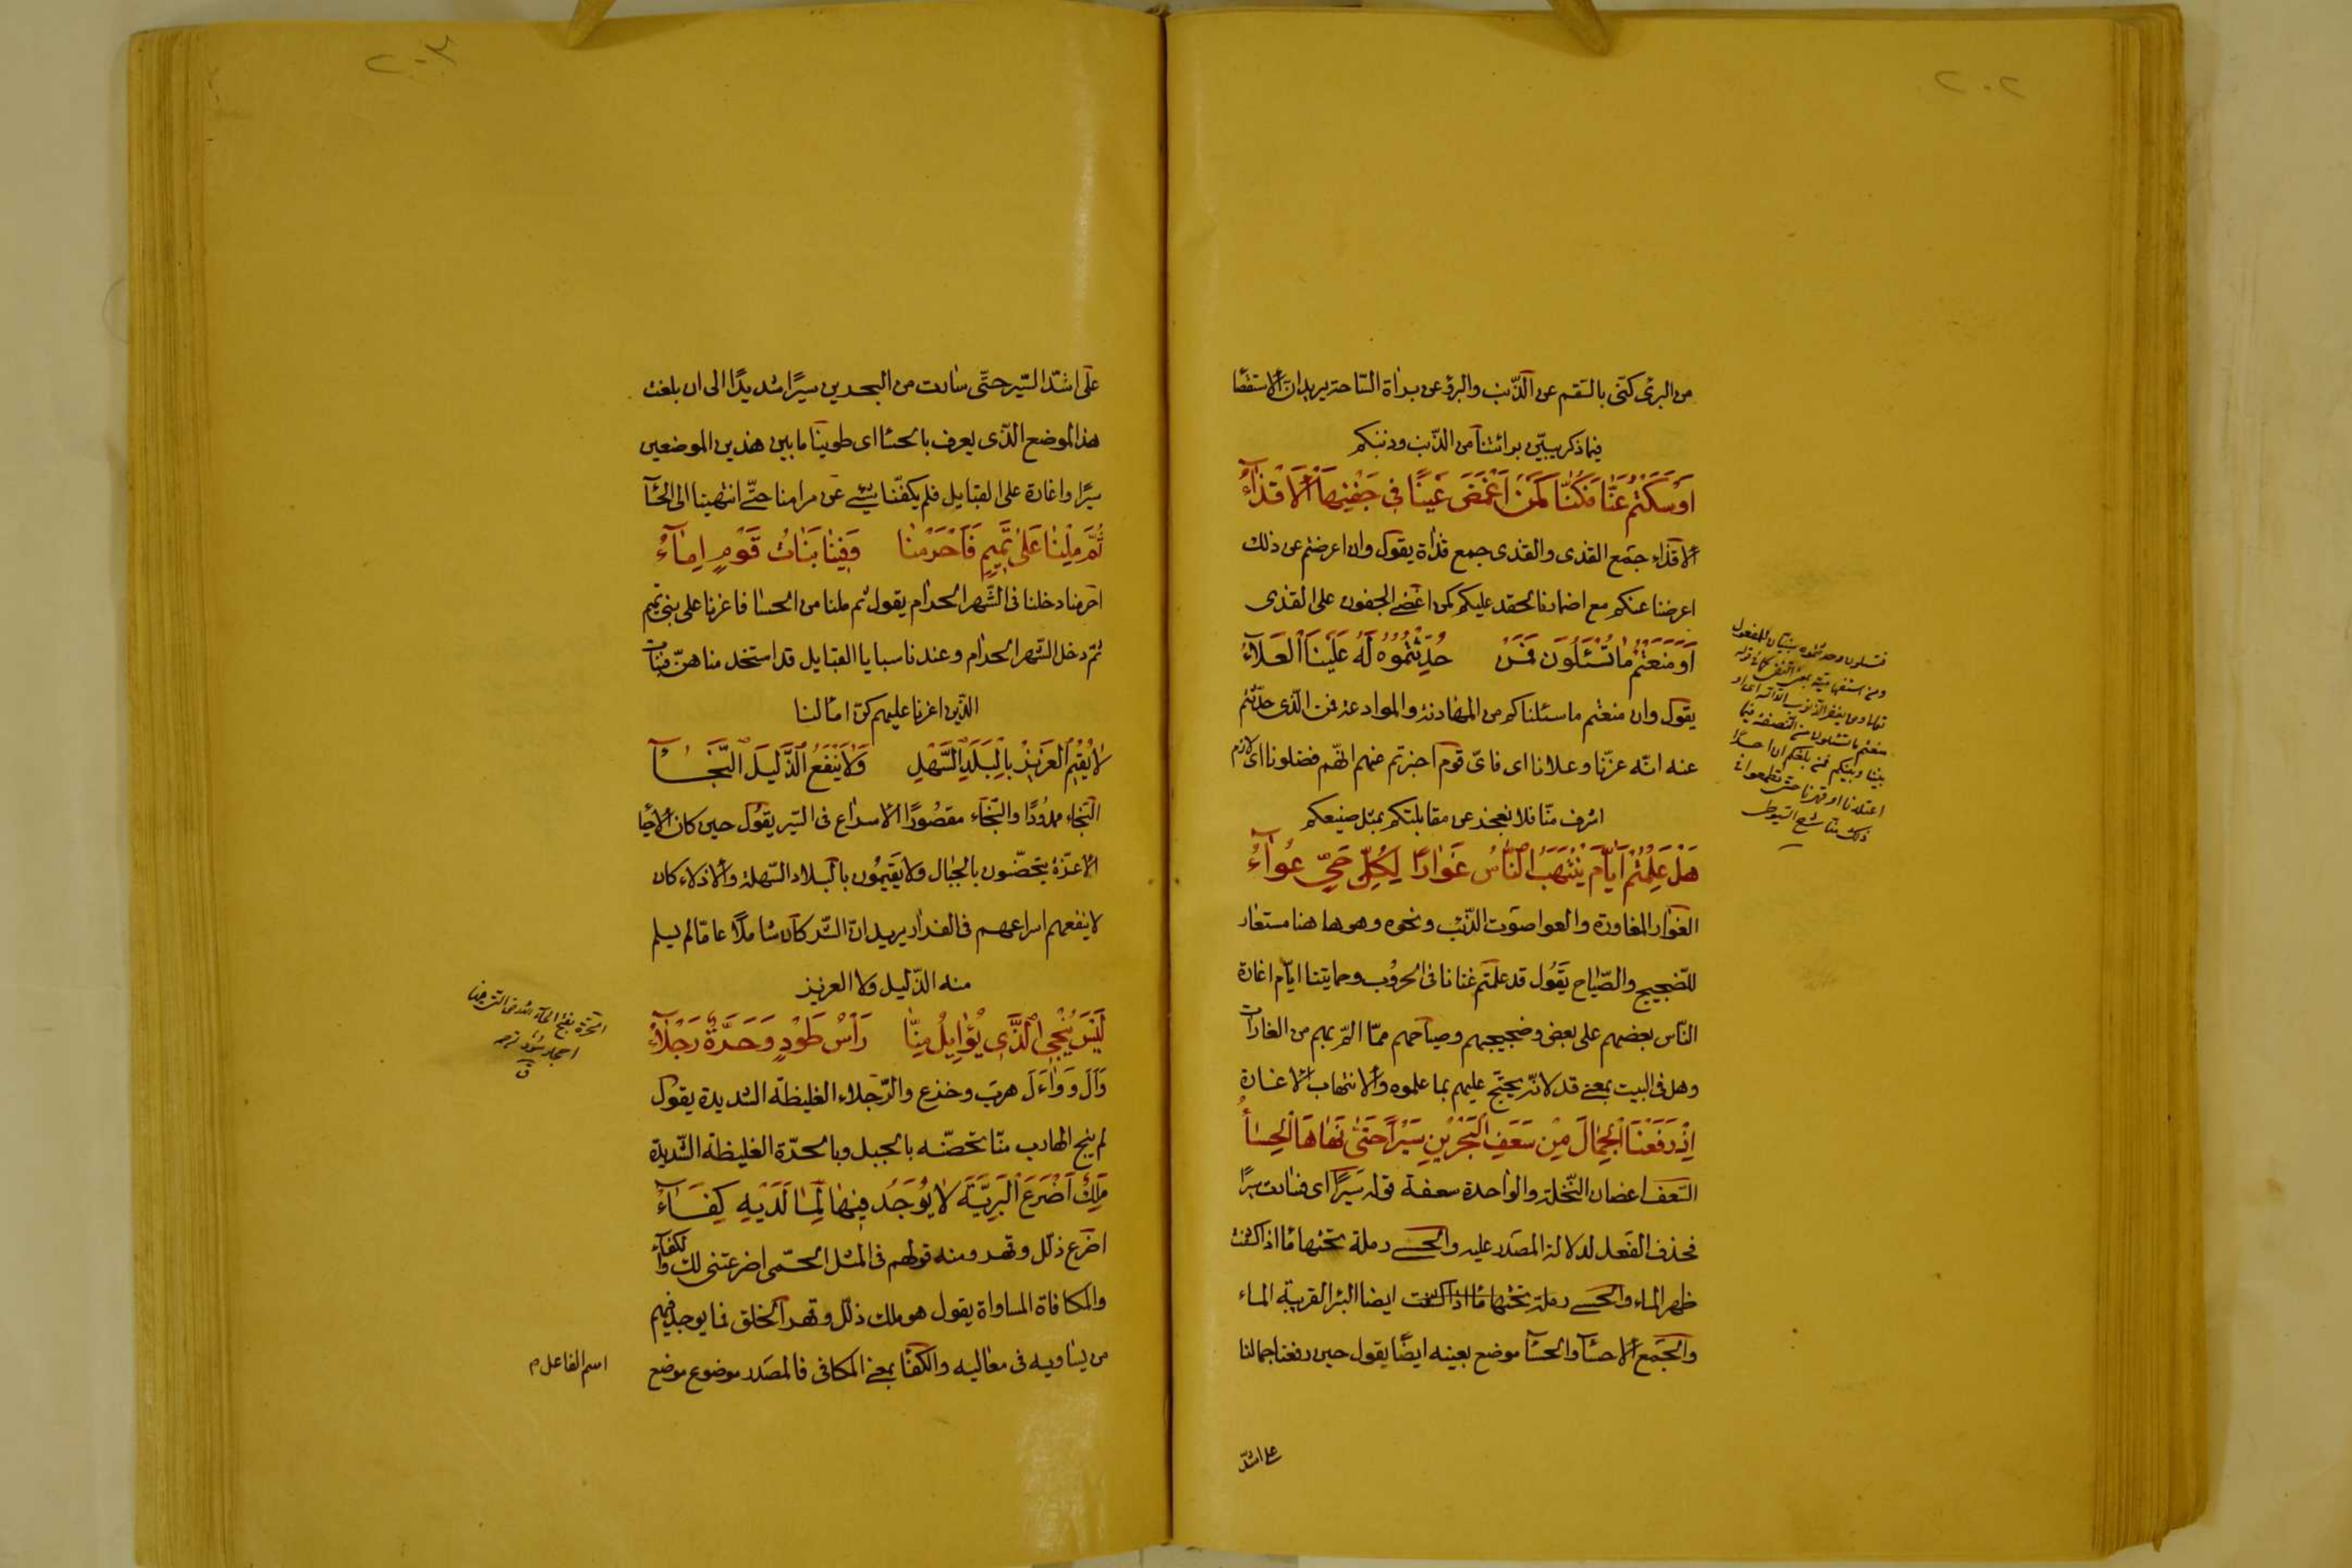 ٢٠٢
من البرئ كنّى بالسّقم عن الذّنب والبرؤ عن براة السّاحة يريد انّ الاستقصا
فيما ذكر يبيّن برائتنا من الذّنب وذنبكم
اَوْ سَكَتُمْ عَنّا فَكُنّا كَمَنْ اَغْمَضَ عَيْنًا فى جَفْنِهَا اْلاَقْذٰآءُ
الاقذاء جمع القذى والقذى جمع قذاة يقول وان اعرضتم عن ذلك
اعرضنا عنكم مع اضمارنا الحقد عليكم كمن اغضى الجفون على القذى
اَوْ مَنَعْتُمْ مٰا تُسْئَلُونَ فَمَنْ حُدِّثْتُمُوُهُ لَهُ عَلَيْنَا الْعَلآءُ
يقول وان منعتم ما سئلناكم من المهادنة والموادعة فمن الّذى حدّثتم
عنه انّه عزّنا وعلانا اى فاىّ قوم اخبرتم عنهم انّهم فضلونا اى لا قوم
اشرف منّا فلا نعجز عن مقابلتكم بمثل صنيعكم
هَلْ عَلِمْتُمْ اَيّٰامَ يُنْتَهَبُ النّٰاسُ غَوٰارًا لِكُلِّ حَىٍّ عُوآءُ
الغوار المغاورة والعوا صوت الذّئب ونحوه وهو ها هنا مستعار
للضّجيج والصّياح يقول قد علمتم غنانا فى الحروب وحمايتنا ايّام اغارة
النّاس بعضهم على بعض وضجيجهم وصياحهم ممّا المّ بهم من الغارات
وهل فى البيت بمعنى قد لانّه يحتجّ عليهم بما علموه والانتهاب الاغارة
اِذْ رَفَعْنَا الْجِمٰالَ مِنْ سَعَفِ الْبَحْرَيْنِ سَيْراً حَتّى نَهٰاهَا الْحِسٰاءُ
السّعف اغصان النّخلة والواحدة سعفة قوله سَيْرًا اى فسارت سيرًا
فحذف الفعل لدلالة المصدر عليه والحسى رملة تحتها مآ اذا كشفت
ظهر الماء والحسى رملة تحتها مآ اذا كشفت ايضا البئر القريبة الماء
والجمع الاحسآ والحسآ موضع بعينه ايضًا يقول حين رفعنا جمالنا
على اشدّ
بينا وبينكم فمن بلغكم ان احدًا
ذلك منّا شرح السّيوطى
٢٠٣
على اشدّ السّير حتّى سارت من البحرين سيرًا شديدًا الى ان بلغت
هذا الموضع الّذى يعرف بالحسا اى طوينا ما بين هذين الموضعين
سيرًا واغارة على القبايل فلم يكفّنا شئ عن مرامنا حتّى انتهينا الى الحسآ
ثُمَّ مِلْنٰا عَلىٰ تَمِيمٍ فَاَحْرَمْنٰا وَفِينٰا بَنٰاتُ قَوْمٍ اِمٰآءُ
احرمنا دخلنا فى الشّهر الحرام يقول ثم ملنا من الحسا فاغرنا على بنى تميم
ثمّ دخل الشّهر الحرام وعندنا سبايا القبايل قد استخدمناهنّ فبنات
الّذين اغرنا عليهم كنّ اماً لنا
لاٰ يُقيُم الْعَزيِزُ بِالْبَلَدِ السَّهْلِ وَلاٰ يَنْفَعُ الذَّليلَ النَّجٰآ
النّجاء ممدُودًا والنّجآء مقصُورًا الاسراع فى السّير يقول حين كان الاحيا
الاعزّة يتحصّنون بالجبال ولا يقيمُون بالبلاد السّهلة والاذلاء كان
لا ينفعهم اسراعهم فى الفرار يريد انّ الشّر كان شاملًا عامّا لم يسلم
منه الذّليل ولا العزيز
لَيْسَ يُنْجِى الَّذى يُؤٰايِلُ مِنّٰا رَأسُ طَوْدٍ وَحَرَّةٌ رَجْلآءُ
وَاَلَ وَوٰاءَلَ هرب وخذع والرّجلاء الغليظة الشديدة يقول
لم ينج الهارب منّا تحصّنه بالجبل وبالحرّة الغليظة الشّديدة
مَلِكٌ اَضْرَعَ الْبَرِيَّةَ لاٰ يُوُجَدُ فيِهٰا لِمٰا لَدَيْهِ كِفٰآءُ
اضرع ذلّل وقهر ومنه قولهم فى المثل الحمّى اضرعتنى لك والكفآء
والمكافاة المساواة يقول هو ملك ذلّل وقهر الخلق فما يوجد فيهم
من يساويه فى معاليه والكفآ بمعنى المكافى فالمصدر موضوع موضع
اسم الفاعل م